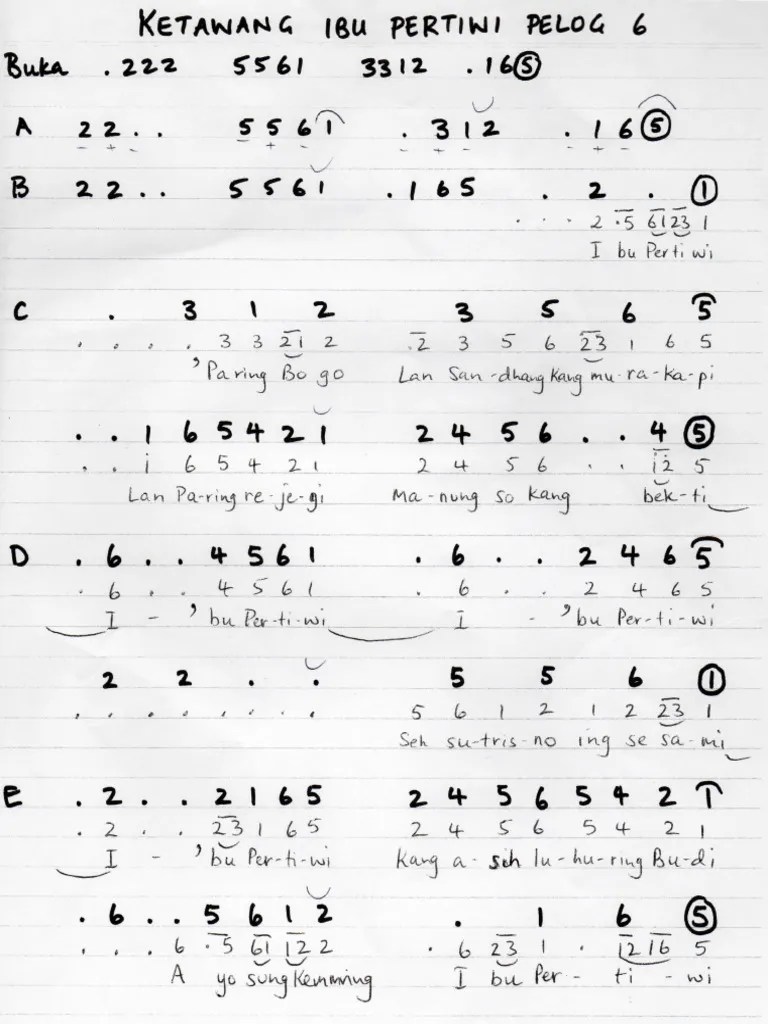 KETAWANG IBU PERTIWI PELOG 6
Buka .222 5561 3312 .16⑤
A 22.. 5561 .312 .16⑤
- + - - + - - - - + -
B 22.. 5561 .165 . 2 . ①
. . . 2 .5 6123 1
I bu Pertiwi
C . 3 1 2 3 5 6 5
. . . . 3 3 21 2 .2 3 5 6 23 1 6 5
'Paring Bo go Lan San-dhang Kang mu-ra-ka-pi
. . 1 6 5 4 2 1 2 4 5 6 . . 4 ⑤
. . i 6 5 4 2 1 2 4 5 6 . . i2 5
Lan Pa-ring re-je-gi Ma-nung so kang bek-ti
D . 6 . . 4 5 6 1 . 6 . . 2 4 6 5
. 6 . . 4 5 6 1 . 6 . . 2 4 6 5
I - 'bu Per-ti-wi I - 'bu Per-ti-wi
2 2 . . 5 5 6 ①
. . . . . . . . 5 6 1 2 1 2 23 1
Seh su-tris-no ing se sa-mi
E . 2 . . 2 1 6 5 2 4 5 6 5 4 2 1
. 2 . . 23 1 6 5 2 4 5 6 5 4 2 1
I - 'bu Per-ti-wi Kang a-sih lu-hu-ring Bu-di
. 6 . . 5 6 1 2 . 1 6 ⑤
. . . 6 .5 61 12 2 . 6 23 1 . 12 16 5
A yo sung I bu Per-ti-wi